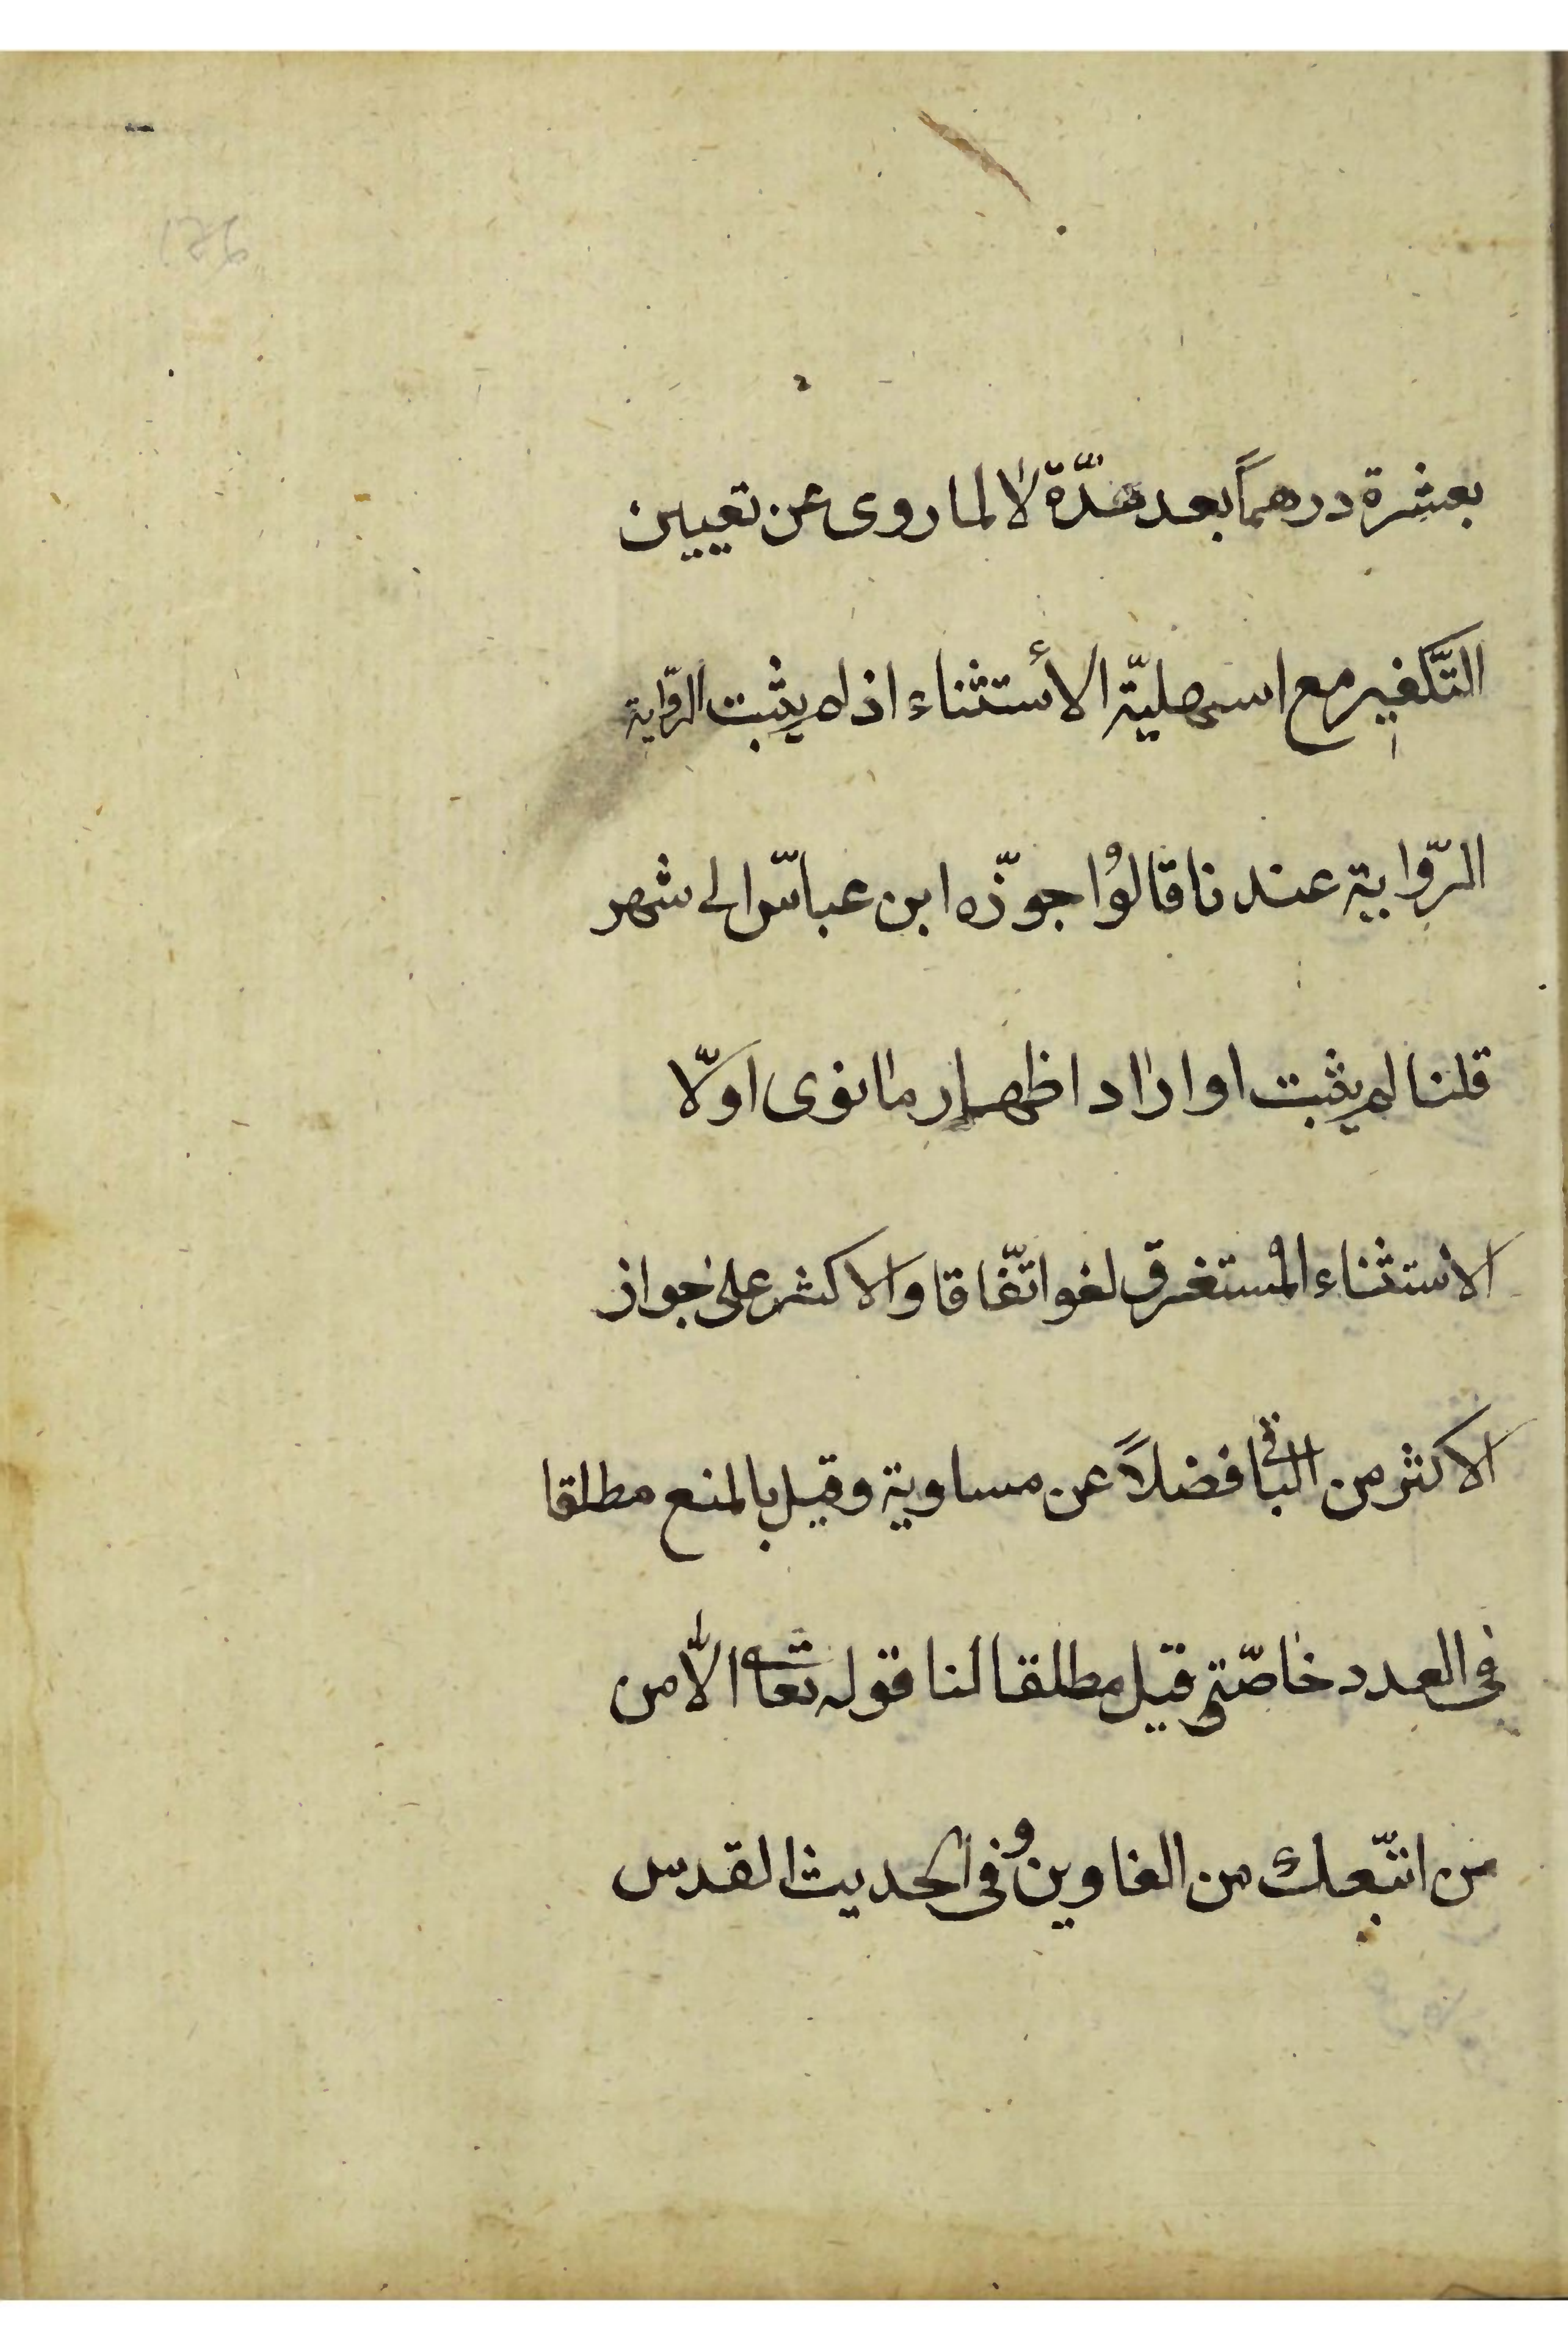 بعشرة درهماً بعد هدّة لا لما روى عن تعيين
التّكفير مع اسهليّة الأستثناء اذ لم يثبت الرّواية
الرّواية عندنا قالوُا جوّزه ابن عبّاس الى شهر
قلنا لم يثبت او اراد اظهار ما نوى اوّلا
الاستثناء المُستغرق لغو اتّفاقا والاكثر على جواز
الاكثر من الباقى فضلاً عن مساوية وقيل بالمنع مطلقا
فى العدد خاصّة وقيل مطلقا لنا قوله تعالى الاّ من
من اتّبعك من الغاوين وفى الحديث القدس